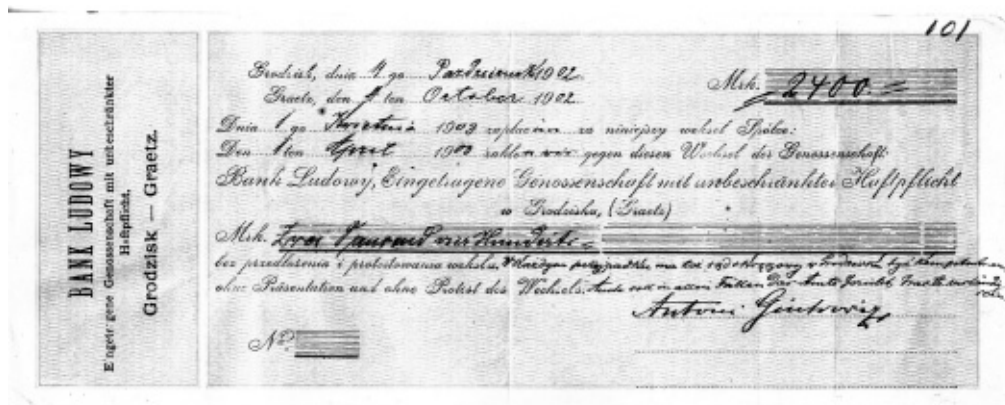 101
BANK LUDOWY
Eingetragene Genossenschaft mit unbeschränkter
Haftpflicht.
Grodzisk — Graetz.
Grodzisk, dnia 4 go Październik 1902.
Graetz, den 4 ten October 1902.
Mrk. 2400.=
Dnia 1 go Kwietnia 1903 zapłacimy za niniejszy weksel Spółce:
Den 1 ten April 1903 zahlen wir gegen diesen Wechsel der Genossenschaft:
Bank Ludowy, Eingetragene Genossenschaft mit unbeschränkter Haftpflicht
w Grodzisku, (Graetz)
Mrk. Zwei Tausend vier Hundert =
bez przedłożenia i protestowania wekslu. W każdym przypadku ma być sąd okręgowy w
ohne Präsentation und ohne Protest des Wechsels. in allen Fällen Das Amts Gericht Graetz
Antoni
No.